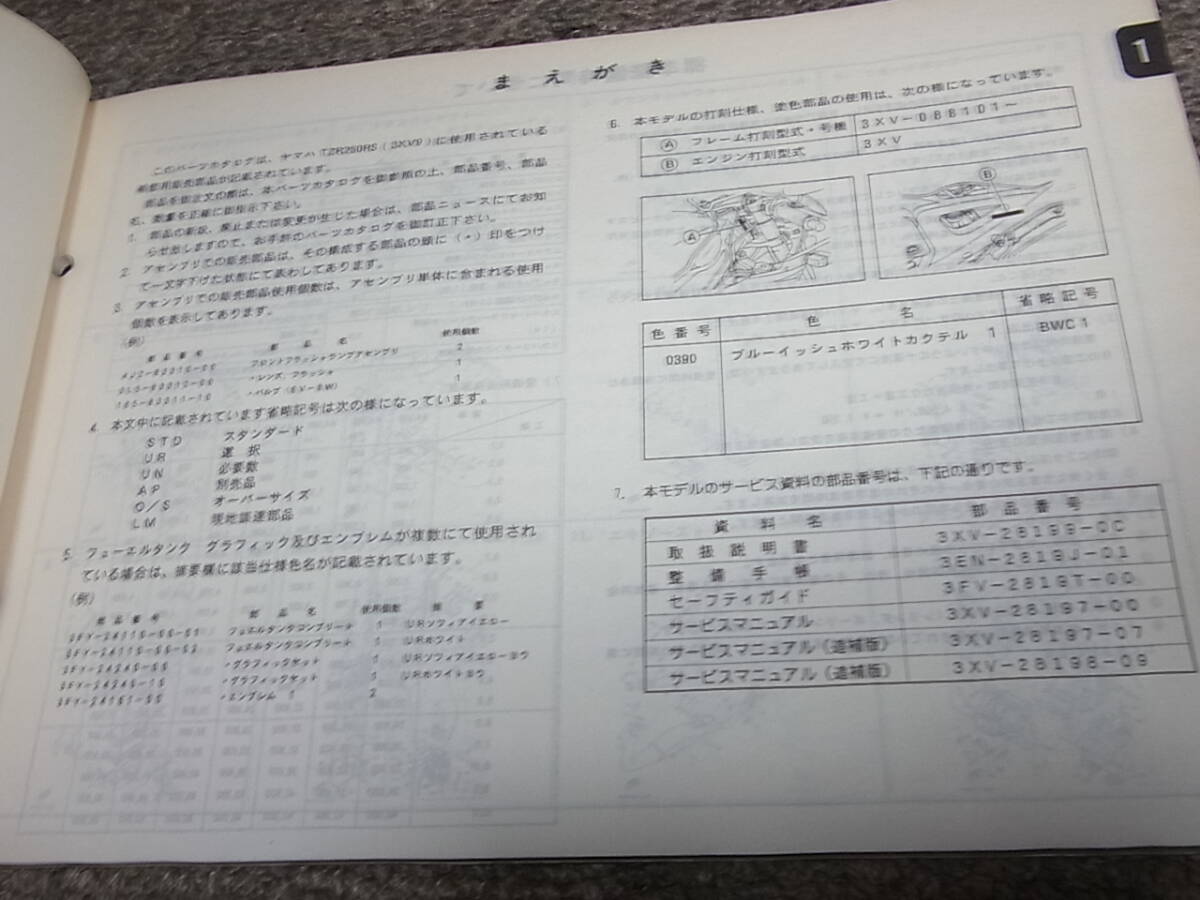 まえがき
1
このパーツカタログは、ヤマハTZR250RS（3XV9）に使用されている
補修用販売部品が記載されています。
部品を御注文の際は、本パーツカタログを御参照の上、部品番号、部品
名、数量を正確に御指示下さい。
1. 部品の新設、廃止または変更が生じた場合は、部品ニュースにてお知
らせ致しますので、お手許のパーツカタログを御訂正下さい。
2. アセンブリでの販売部品は、その構成する部品の頭に（・）印をつけ
て一文字下げた状態にて表わしてあります。
3. アセンブリでの販売部品使用個数は、アセンブリ単体に含まれる使用
個数を表示してあります。
（例）
部品番号 部品名 使用個数
フロントフラッシャランプアセンブリ 2
・レンズ, フラッシャ 1
・バルブ（6V-8W） 1
4. 本文中に記載されています省略記号は次の様になっています。
STD スタンダード
UR 選択
UN 必要数
AP 別売品
O/S オーバーサイズ
LM 現地調達部品
5. フューエルタンク グラフィック及びエンブレムが複数にて使用され
ている場合は、摘要欄に該当仕様色名が記載されています。
（例）
部品番号 部品名 使用個数 摘要
フューエルタンクコンプリート 1 URソフィアイエロー
フューエルタンクコンプリート 1 URホワイト
・グラフィックセット 1 URソフィアイエローヨウ
・グラフィックセット 1 URホワイトヨウ
・エンブレム 1 2
6. 本モデルの打刻仕様、塗色部品の使用は、次の様になっています。
Ⓐ フレーム打刻型式・号機 3XV-088101～
Ⓑ エンジン打刻型式 3XV
Ⓐ
Ⓑ
色番号 色名 省略記号
0390 ブルーイッシュホワイトカクテル 1 BWC1
7. 本モデルのサービス資料の部品番号は、下記の通りです。
資料名 部品番号
取扱説明書 3XV-28199-0C
整備手帳 3EN-2819J-01
セーフティガイド 3FV-2819T-00
サービスマニュアル 3XV-28197-00
サービスマニュアル（追補版） 3XV-28197-07
サービスマニュアル（追補版） 3XV-28198-09